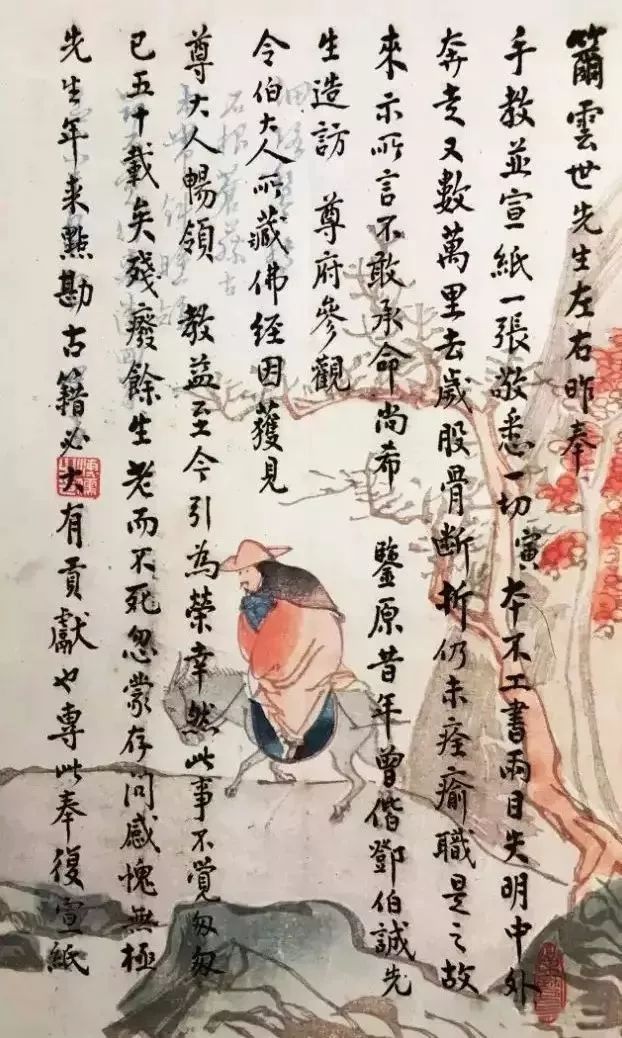 籋雲世先生左右昨奉
手教並宣紙一張敬悉一切寅本不工書兩目失明中外
奔走又數萬里去歲股骨斷折仍未痊瘉職是之故
來示所言不敢承命尚希 鑒原昔年曾偕鄧伯誠先
生造訪 尊府參觀
令伯大人所藏佛經因獲見
尊大人暢領 教益至今引為榮幸然此事不覺匆匆
已五十載矣殘廢餘生老而不死忽蒙存問感愧無極
先生年來點勘古籍必大有貢獻也專此奉復宣紙